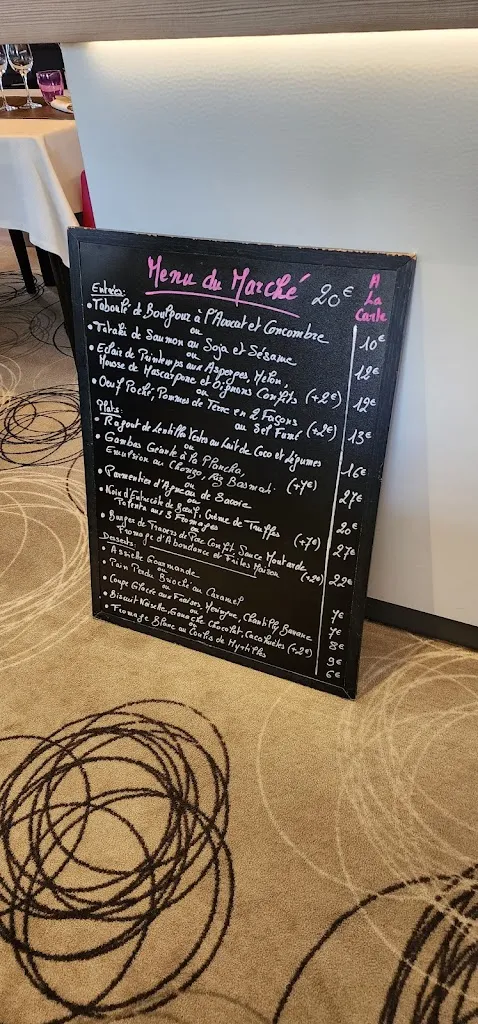 Menu du Marché 20€
A La Carte
Entrées:
• Taboulé de Boulgour à l'Avocat et Concombre 10€
ou
• Tataki de Saumon au Soja et Sésame 12€
ou
• Eclair de Printemps aux Asperges, Melon,
Mousse de Mascarpone et Oignons Confits (+2€) 12€
ou
• Oeuf Poché, Pommes de Terre en 2 Façons
au Sel Fumé (+2€) 13€
Plats:
• Ragout de Lentilles Vertes au Lait de Coco et Légumes 16€
ou
• Gambas Géante à la Plancha,
Emulsion au Chorizo, Riz Basmati (+7€) 27€
ou
• Parmentier d'Agneau de Savoie 20€
ou
• Noix d'Entrecôte de Boeuf, Crème de Truffes
Polenta aux 3 Fromages (+7€) 27€
ou
• Burger de Travers de Porc Confit, Sauce Moutarde
Fromage d'Abondance et Frites Maison (+2€) 22€
Desserts:
• Assiette Gourmande 7€
ou
• Pain Perdu Brioché au Caramel 7€
ou
• Coupe Glacée aux Fraises, Meringue, Chantilly Banane 8€
ou
• Biscuit Noisette, Ganache Chocolat, Cacahuètes (+2€) 9€
ou
• Fromage Blanc au Coulis de Myrtilles 6€